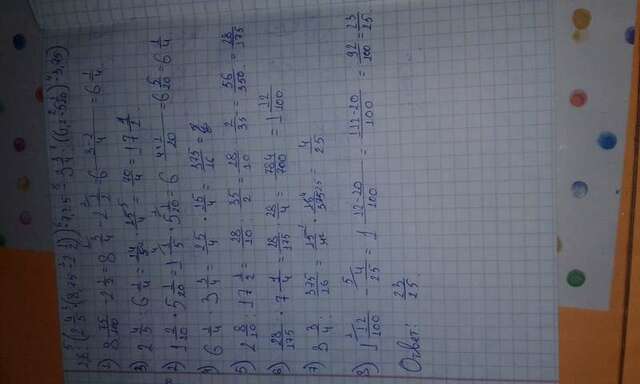 1) 8 75/100 - 2 1/2 = 8 3/4 - 2 1/2 = 6 (3-2)/4 = 6 1/4
3) 2 4/5 : 6 1/4 = 14/5 · 25/4 = 70/4 = 17 1/2
2) 1 2/10 · 5 1/20 = 1 1/5 · 5 1/20 = 6 (4+1)/20 = 6 5/20 = 6 1/4
4) 6 1/4 · 3 3/4 = 25/4 · 15/4 = 375/16 =
5) 2 8/10 : 17 1/2 = 28/10 : 35/2 = 28/10 · 2/35 = 56/350 = 28/175
6) 28/175 · 7 1/4 = 28/175 · 28/4 = 784/700 = 1 12/100
7) 3 3/4 : 375/16 = 15/4 · 16/375 = 4/25
8) 1 12/100 - 4/25 = 1 (12-20)/100 = (112-20)/100 = 92/100 = 23/25
Ответ: 23/25